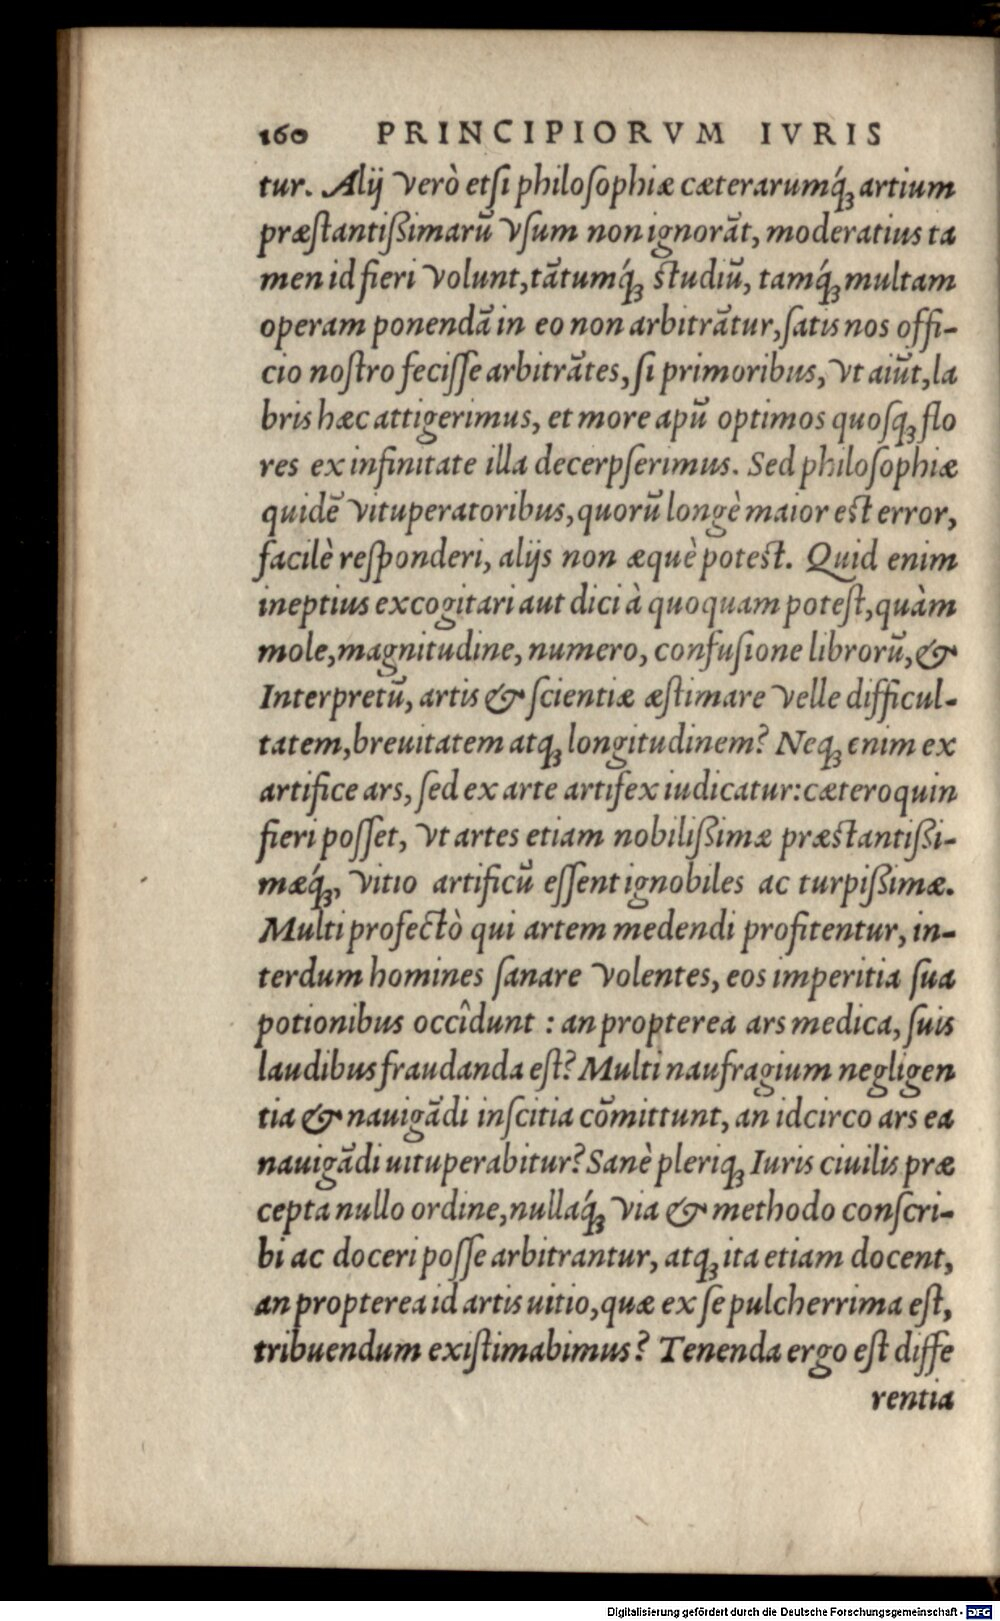 160 PRINCIPIORVM IVRIS
tur. Alij verò etſi philoſophiæ cæterarumq́ꝫ artium
præſtantiſsimarũ vſum non ignorãt, moderatius ta
men id fieri volunt, tãtumq́ꝫ ſtudiũ, tamq́ꝫ multam
operam ponendã in eo non arbitrãtur, ſatis nos offi-
cio noſtro feciſſe arbitrãtes, ſi primoribus, vt aiũt, la
bris hæc attigerimus, et more apũ optimos quoſqꝫ flo
res ex infinitate illa decerpſerimus. Sed philoſophiæ
quidẽ vituperatoribus, quorũ longè maior eſt error,
facilè reſponderi, alijs non æquè poteſt. Quid enim
ineptius excogitari aut dici à quoquam poteſt, quàm
mole, magnitudine, numero, confuſione librorũ, &
Interpretũ, artis & ſcientiæ æſtimare velle difficul-
tatem, breuitatem atqꝫ longitudinem? Neqꝫ enim ex
artifice ars, ſed ex arte artifex iudicatur: cæteroquin
fieri poſſet, vt artes etiam nobiliſsimæ præſtantiſsi-
mæq́ꝫ, vitio artificũ eſſent ignobiles ac turpiſsimæ.
Multi profectò qui artem medendi profitentur, in-
terdum homines ſanare volentes, eos imperitia ſua
potionibus occîdunt : an propterea ars medica, ſuis
laudibus fraudanda eſt? Multi naufragium negligen
tia & nauigãdi inſcitia cõmittunt, an idcirco ars ea
nauigãdi uituperabitur? Sanè pleriqꝫ Iuris ciuilis præ
cepta nullo ordine, nullaq́ꝫ via & methodo conſcri-
bi ac doceri poſſe arbitrantur, atqꝫ ita etiam docent,
an propterea id artis uitio, quæ ex ſe pulcherrima eſt,
tribuendum exiſtimabimus? Tenenda ergo eſt diffe
rentia
Digitalisierung gefördert durch die Deutsche Forschungsgemeinschaft - DFG